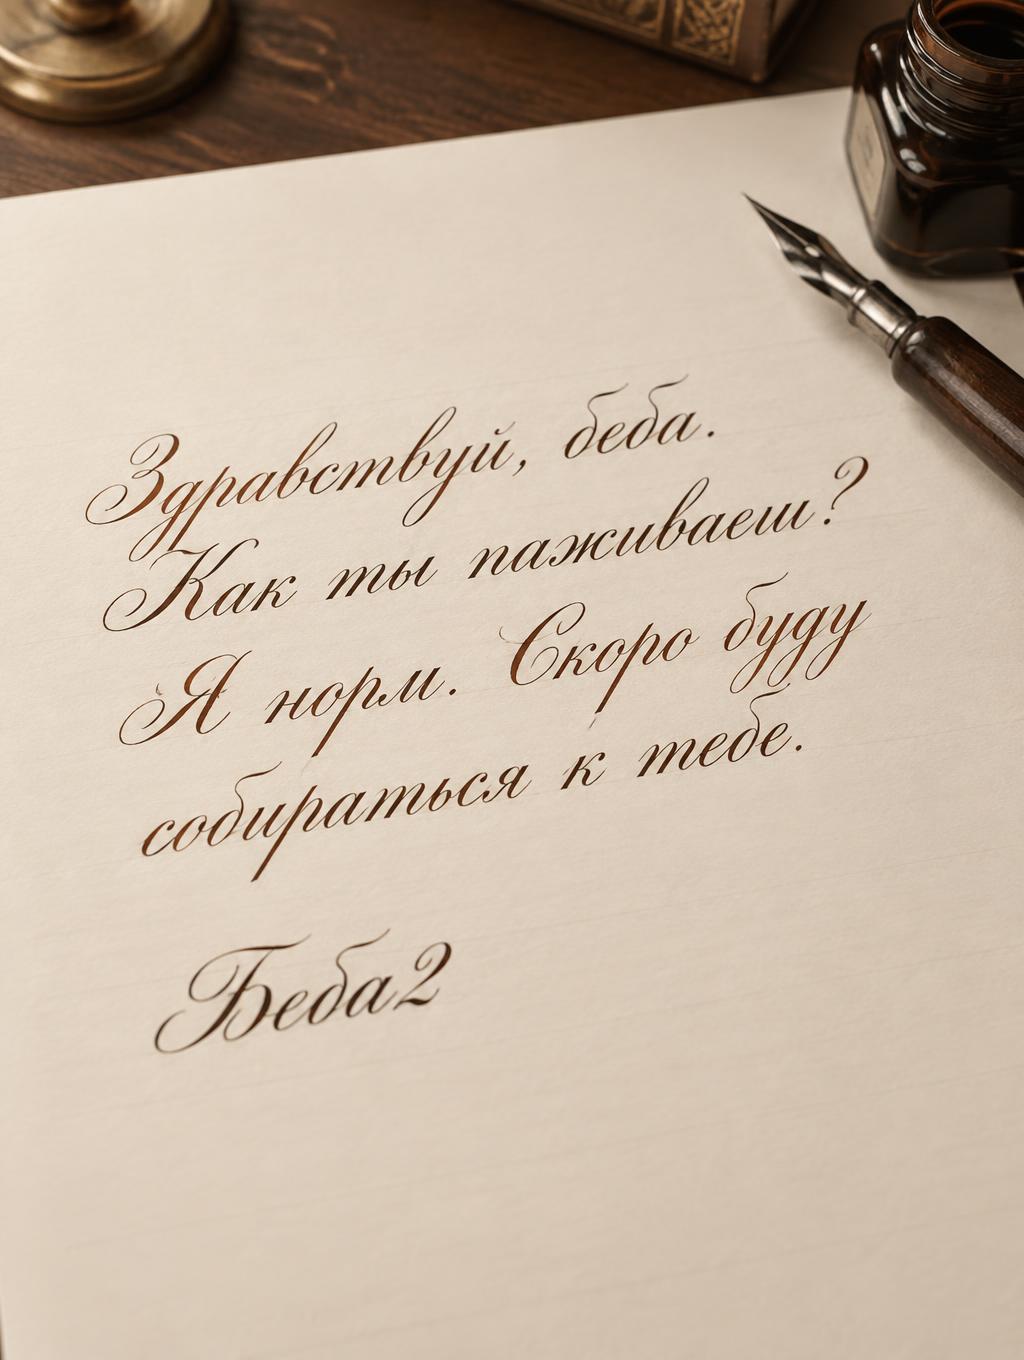 Здравствуй, беба.
Как ты паживаеш?
Я норм. Скоро буду
собираться к тебе.
Беба2